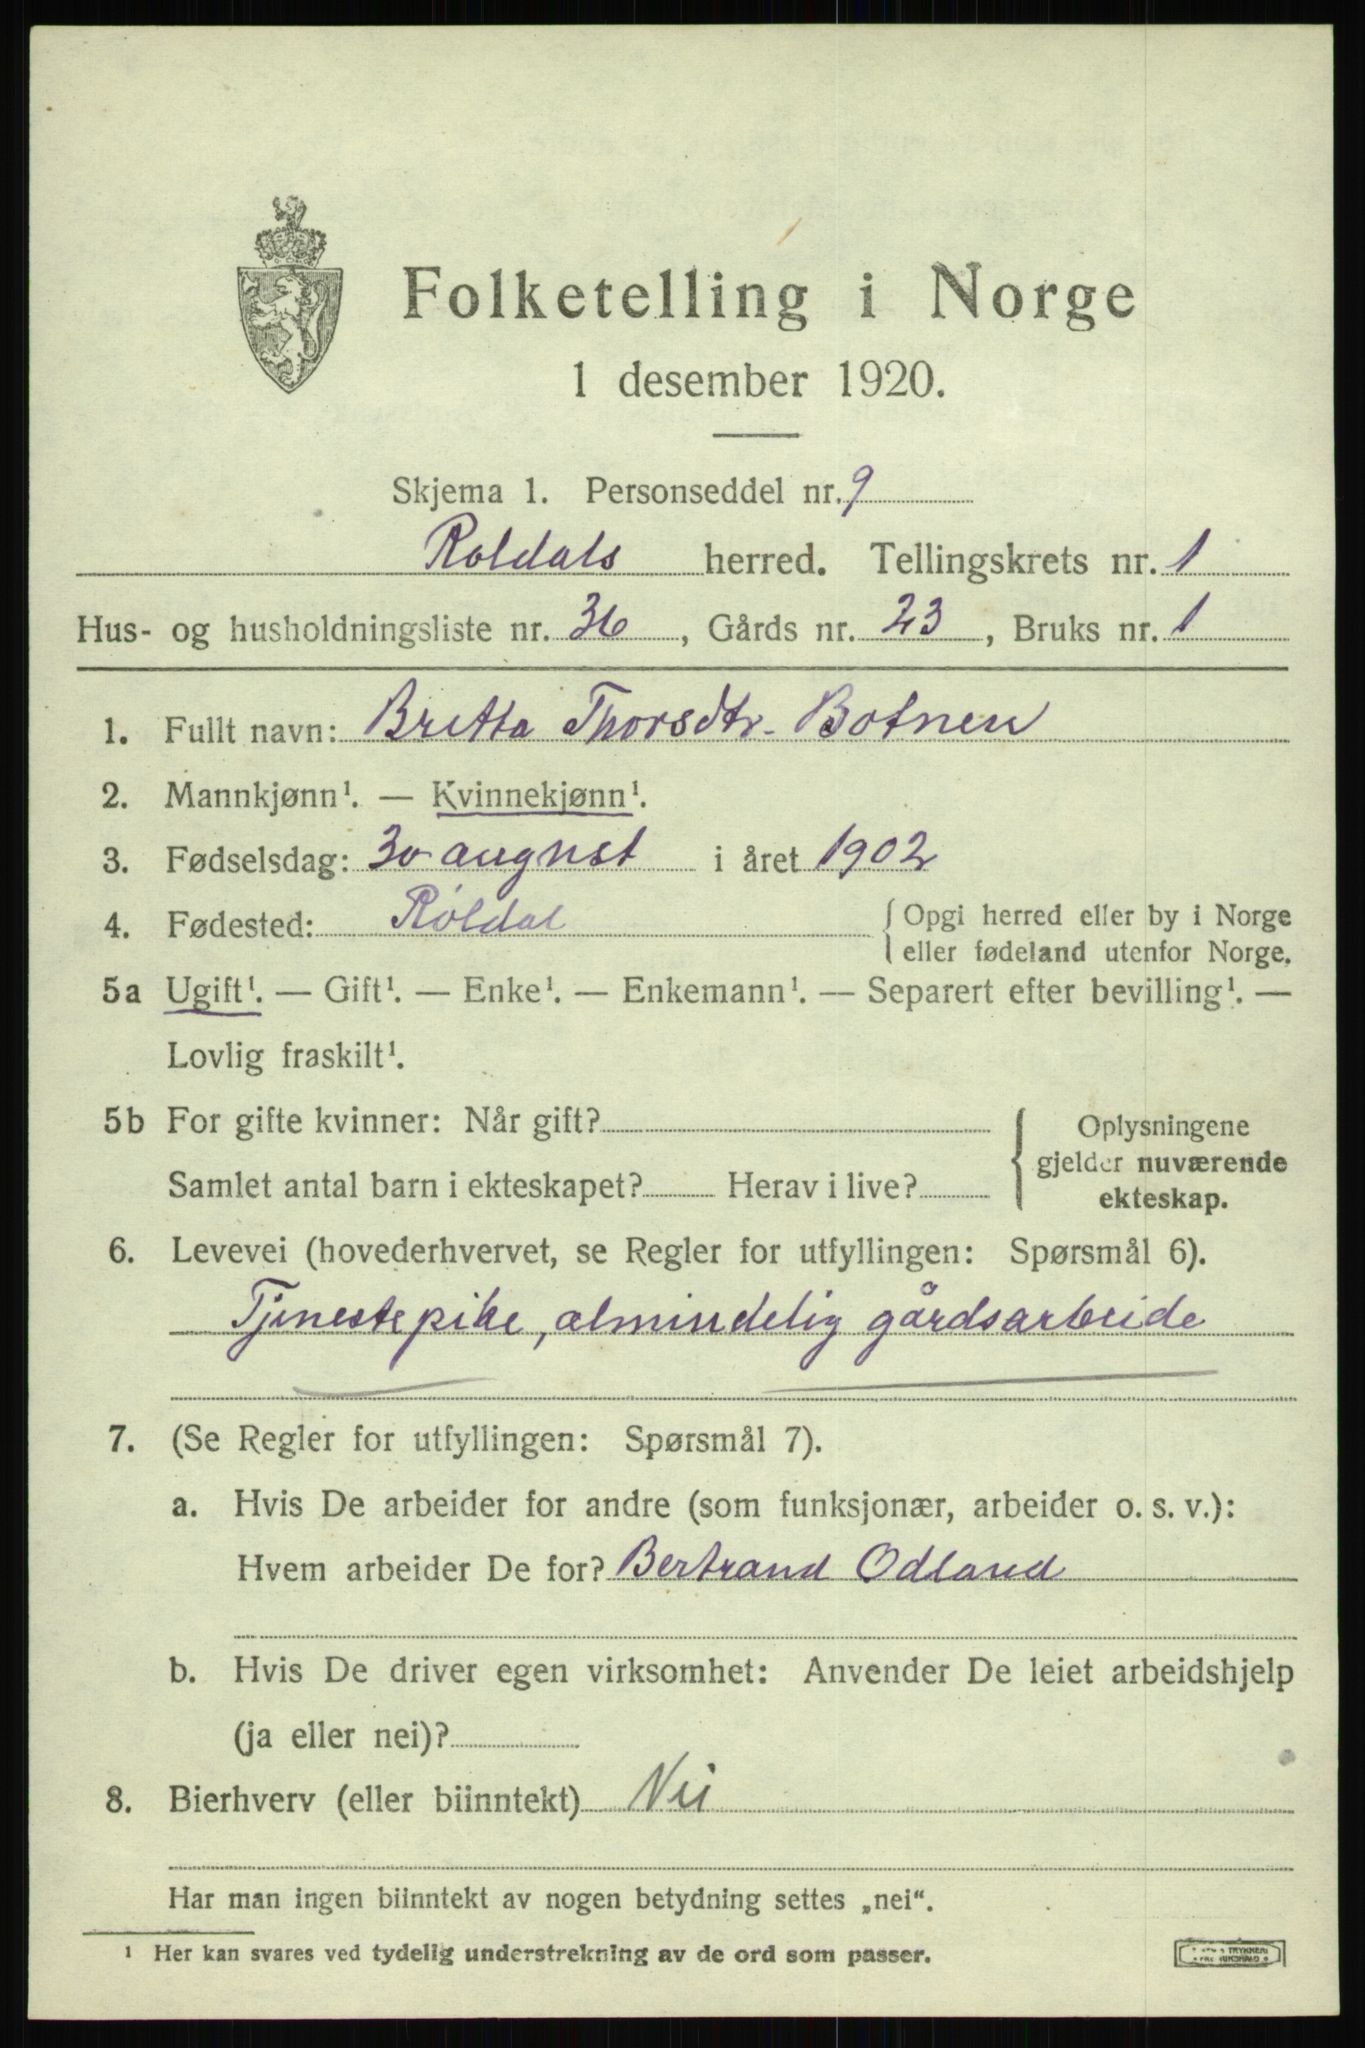 Folketelling i Norge
1 desember 1920.
Skjema 1. Personseddel nr. 9
Roldals herred. Tellingskrets nr. 1
Hus- og husholdningsliste nr. 36, Gårds nr. 23, Bruks nr. 1
1. Fullt navn: Britta Thorsdtr. Botnen
2. Mannkjønn¹. — Kvinnekjønn¹.
3. Fødselsdag: 30 august i året 1902
4. Fødested: Róldal { Opgi herred eller by i Norge
eller fødeland utenfor Norge.
5a Ugift¹. — Gift¹. — Enke¹. — Enkemann¹. — Separert efter bevilling¹. —
Lovlig fraskilt¹.
5b For gifte kvinner: Når gift?
Samlet antal barn i ekteskapet? Herav i live?
Oplysningene
gjelder nuværende
ekteskap.
6. Levevei (hovederhvervet, se Regler for utfyllingen: Spørsmål 6).
Tjenestepike, almindelig gårdsarbeide
7. (Se Regler for utfyllingen: Spørsmål 7).
a. Hvis De arbeider for andre (som funksjonær, arbeider o. s. v.):
Hvem arbeider De for? Bertrand Odland
b. Hvis De driver egen virksomhet: Anvender De leiet arbeidshjelp
(ja eller nei)?
8. Bierhverv (eller biinntekt) Nei
Har man ingen biinntekt av nogen betydning settes „nei“.
¹ Her kan svares ved tydelig understrekning av de ord som passer.